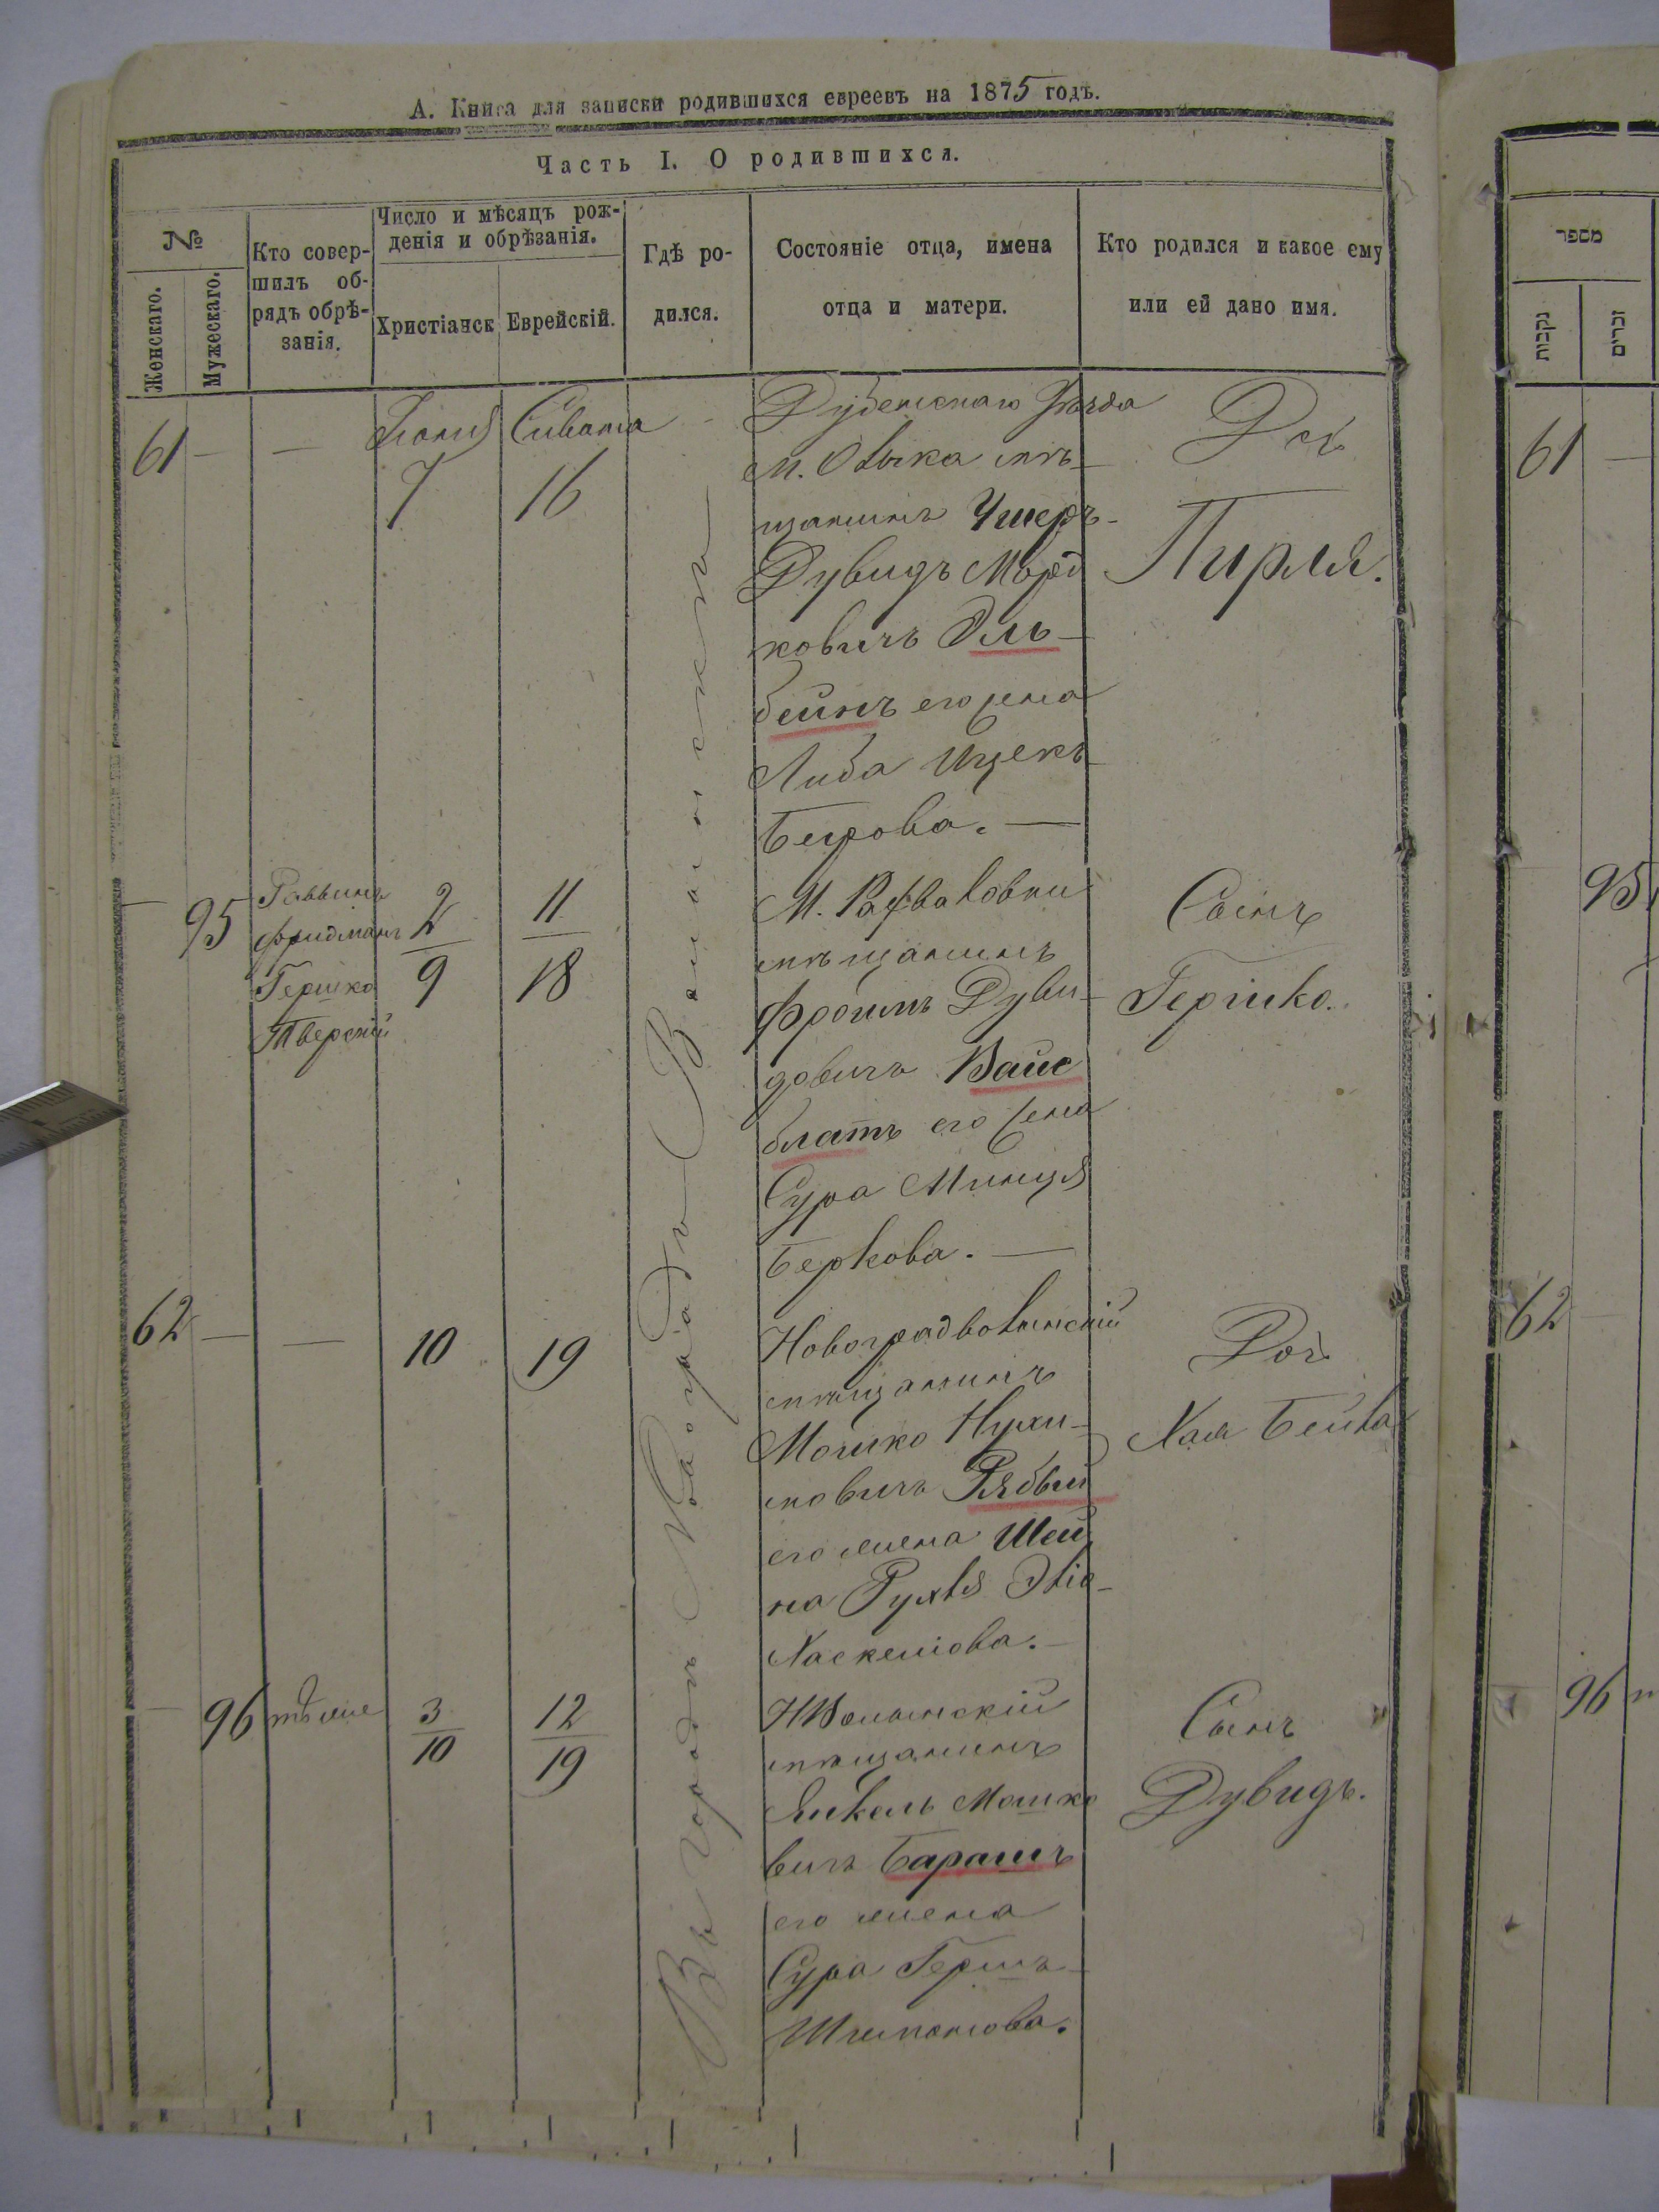 А. Книга для записки родившихся евреевъ на 1875 годъ.
Часть I. О родившихся.
№
Женскаго.
Мужескаго.
Кто совер-
шилъ об-
рядъ обрѣ-
занія.
Число и мѣсяцъ рож-
денія и обрѣзанія.
Христіанск
Еврейскій.
Гдѣ ро-
дился.
Состояніе отца, имена
отца и матери.
Кто родился и какое ему
или ей дано имя.
Въ городѣ Новоградъ Волынскѣ
61 — —
Іюня
7
Сивана
16
Дубенскаго уѣзда
м. Олыка мѣ-
щанинъ Ушеръ-
Дувидъ Морд
ковичъ Эль-
бейнъ его жена
Либа Ицекъ
Берова. —
Доч
Пирля.
— 95
Раввинъ
Фридманъ
Гершко
Тверскій
2
9
11
18
М.
мѣщанинъ
Фроимъ Дуви-
довичъ Вайс
блатъ его жена
Сура Минця
Беркова. —
Сынъ
Гершко.
62 — —
10
19
Новоградволынскій
мѣщанинъ
Мошко Нухи-
мовичъ Рябый
его жена Шей
на Рухля
Хаскелiова. —
Доч
Хая Бейла
— 96
тѣ же
3
10
12
19
НВолынскій
мѣщанинъ
Янкель Мошко
вичъ Барашъ
его жена
Сура Гершъ-
Сынъ
Дувидъ.
מספר
נקבות
זכרים
61 —
95
62 —
96